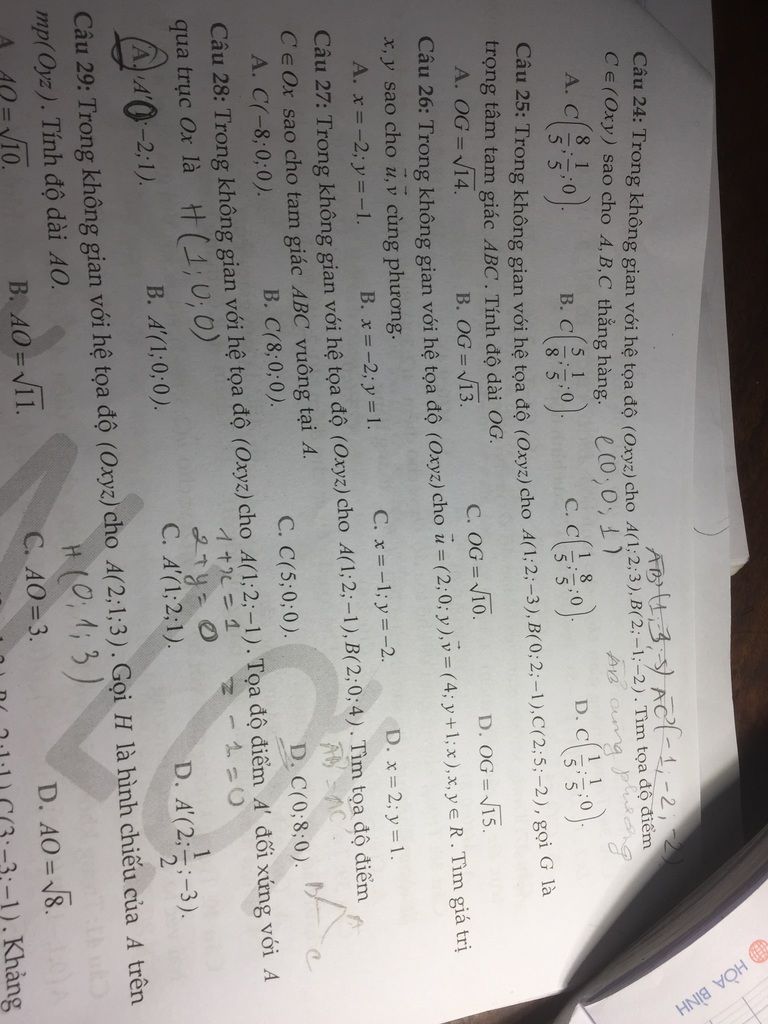 Câu 24: Trong không gian với hệ tọa độ (Oxyz) cho A(1;2;3), B(2;-1;-2). Tìm tọa độ điểm
C ∈ (Oxy) sao cho A, B, C thẳng hàng.
A. C(8/5; 1/5; 0). B. C(5/8; 1/5; 0). C. C(1/5; 8/5; 0). D. C(1/5; 1/5; 0).
Câu 25: Trong không gian với hệ tọa độ (Oxyz) cho A(1;2;-3), B(0;2;-1), C(2;5;-2), gọi G là
trọng tâm tam giác ABC. Tính độ dài OG.
A. OG = √14. B. OG = √13. C. OG = √10. D. OG = √15.
Câu 26: Trong không gian với hệ tọa độ (Oxyz) cho u = (2;0;y), v = (4;y+1;x), x, y ∈ R. Tìm giá trị
x, y sao cho u, v cùng phương.
A. x = -2; y = -1. B. x = -2; y = 1. C. x = -1; y = -2. D. x = 2; y = 1.
Câu 27: Trong không gian với hệ tọa độ (Oxyz) cho A(1;2;-1), B(2;0;4). Tìm tọa độ điểm
C ∈ Ox sao cho tam giác ABC vuông tại A.
A. C(-8;0;0). B. C(8;0;0). C. C(5;0;0). D. C(0;8;0).
Câu 28: Trong không gian với hệ tọa độ (Oxyz) cho A(1;2;-1). Tọa độ điểm A' đối xứng với A
qua trục Ox là H(1;0;0) 1+x=1 2+y=0 z-1=0
A. A'( ;-2;1). B. A'(1;0;0). C. A'(1;2;1). D. A'(2; 1/2; -3).
Câu 29: Trong không gian với hệ tọa độ (Oxyz) cho A(2;1;3). Gọi H là hình chiếu của A trên
mp(Oyz). Tính độ dài AO. H(0;1;3)
A. AO = √10. B. AO = √11. C. AO = 3. D. AO = √8.
C(3;-3;-1). Khẳng
HÒA BÌNH